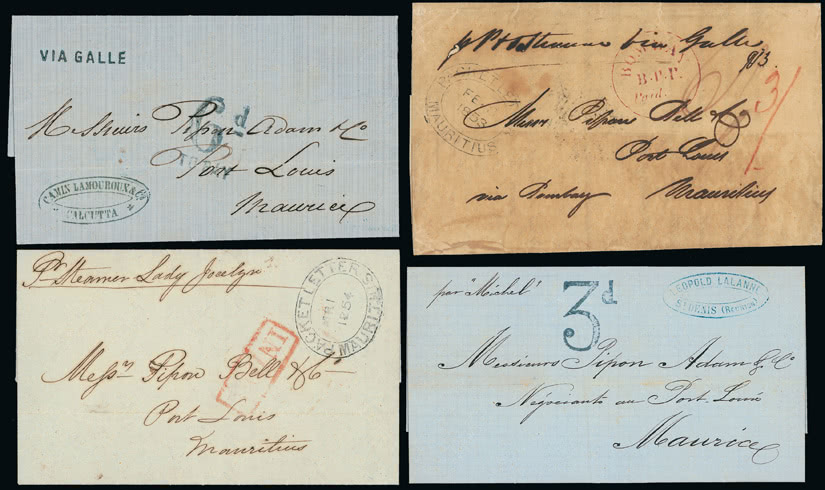 VIA GALLE
6d
Messieurs Pipon Adam & Co
Port Louis
Maurice
CAMIN LAMOUROUX & Co
CALCUTTA
via Galle
BOMBAY
B.P.P.
Paid.
3/
PACKET LETTER
FE
1853
MAURITIUS
Messrs Pipon Bell & Co
Port Louis
via Bombay Mauritius
Pr Steamer Lady Jocelyn
PACKET LETTER
1854
MAURITIUS
Messrs Pipon Bell & Co
Port Louis
Mauritius
par "Michel"
3d
LEOPOLD LALANNE
ST DENIS (Réunion)
Messieurs Pipon Adam & Co
Négociants au Port Louis
Maurice